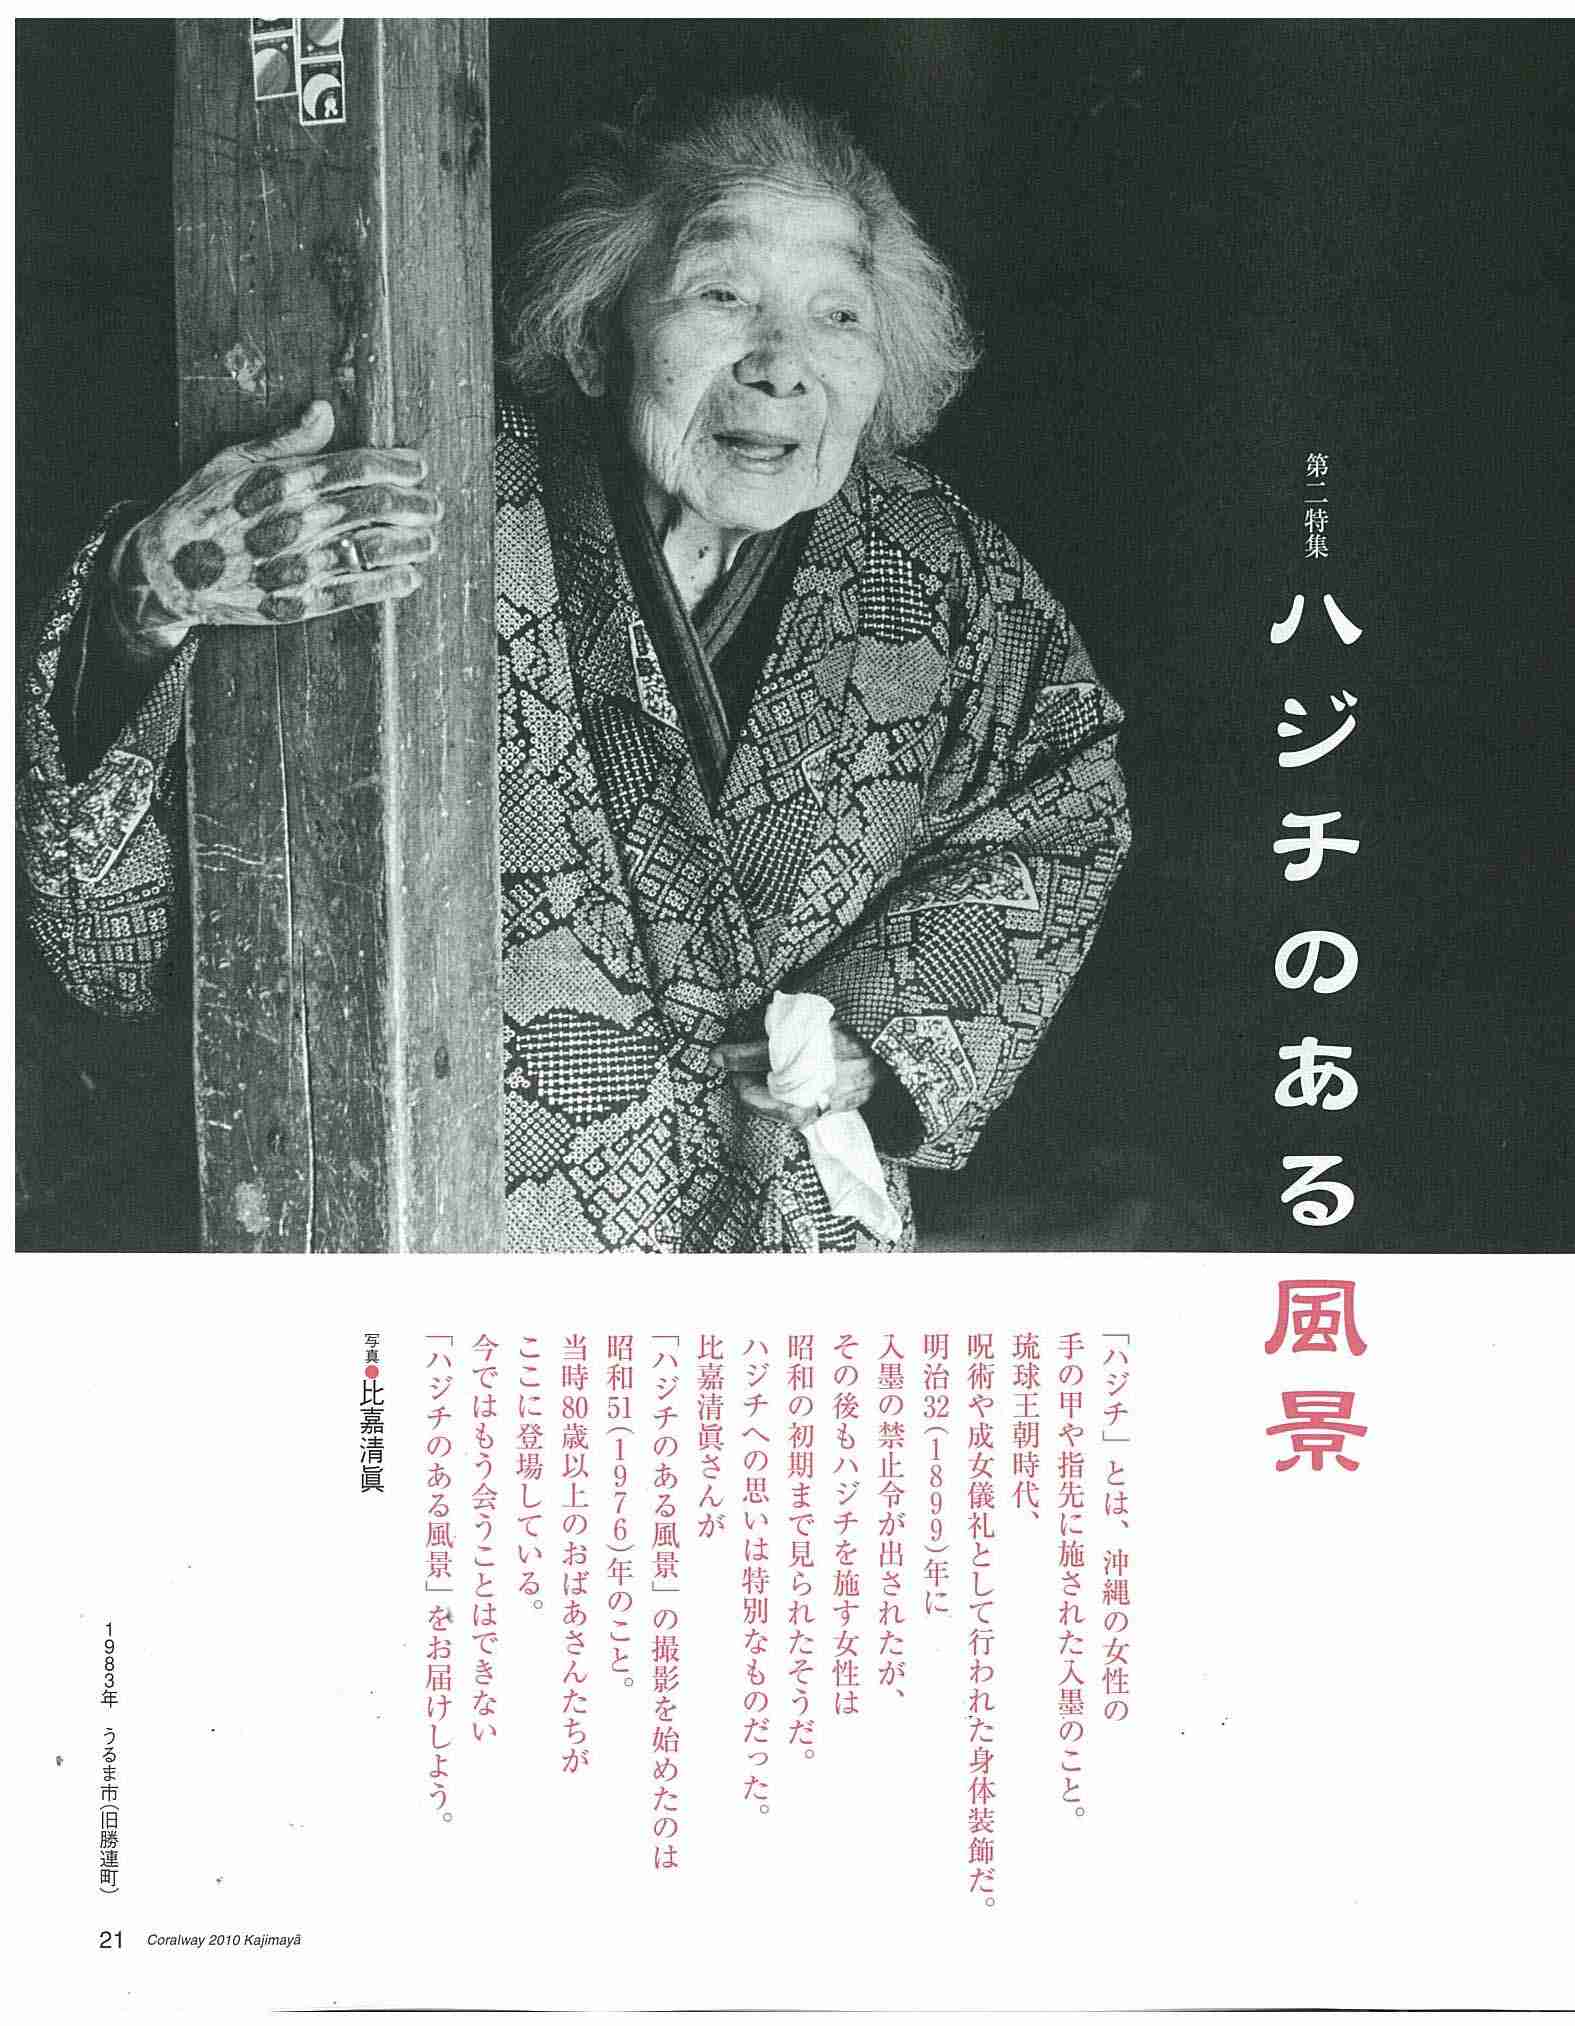 第二特集
ハジチのある風景
「ハジチ」とは、沖縄の女性の
手の甲や指先に施された入墨のこと。
琉球王朝時代、
呪術や成女儀礼として行われた身体装飾だ。
明治32(1899)年に
入墨の禁止令が出されたが、
その後もハジチを施す女性は
昭和の初期まで見られたそうだ。
ハジチへの思いは特別なものだった。
比嘉清眞さんが
「ハジチのある風景」の撮影を始めたのは
昭和51(1976)年のこと。
当時80歳以上のおばあさんたちが
ここに登場している。
今ではもう会うことはできない
「ハジチのある風景」をお届けしよう。
写真●比嘉清眞
1983年　うるま市(旧勝連町)
21 Coralway 2010 Kajimayā